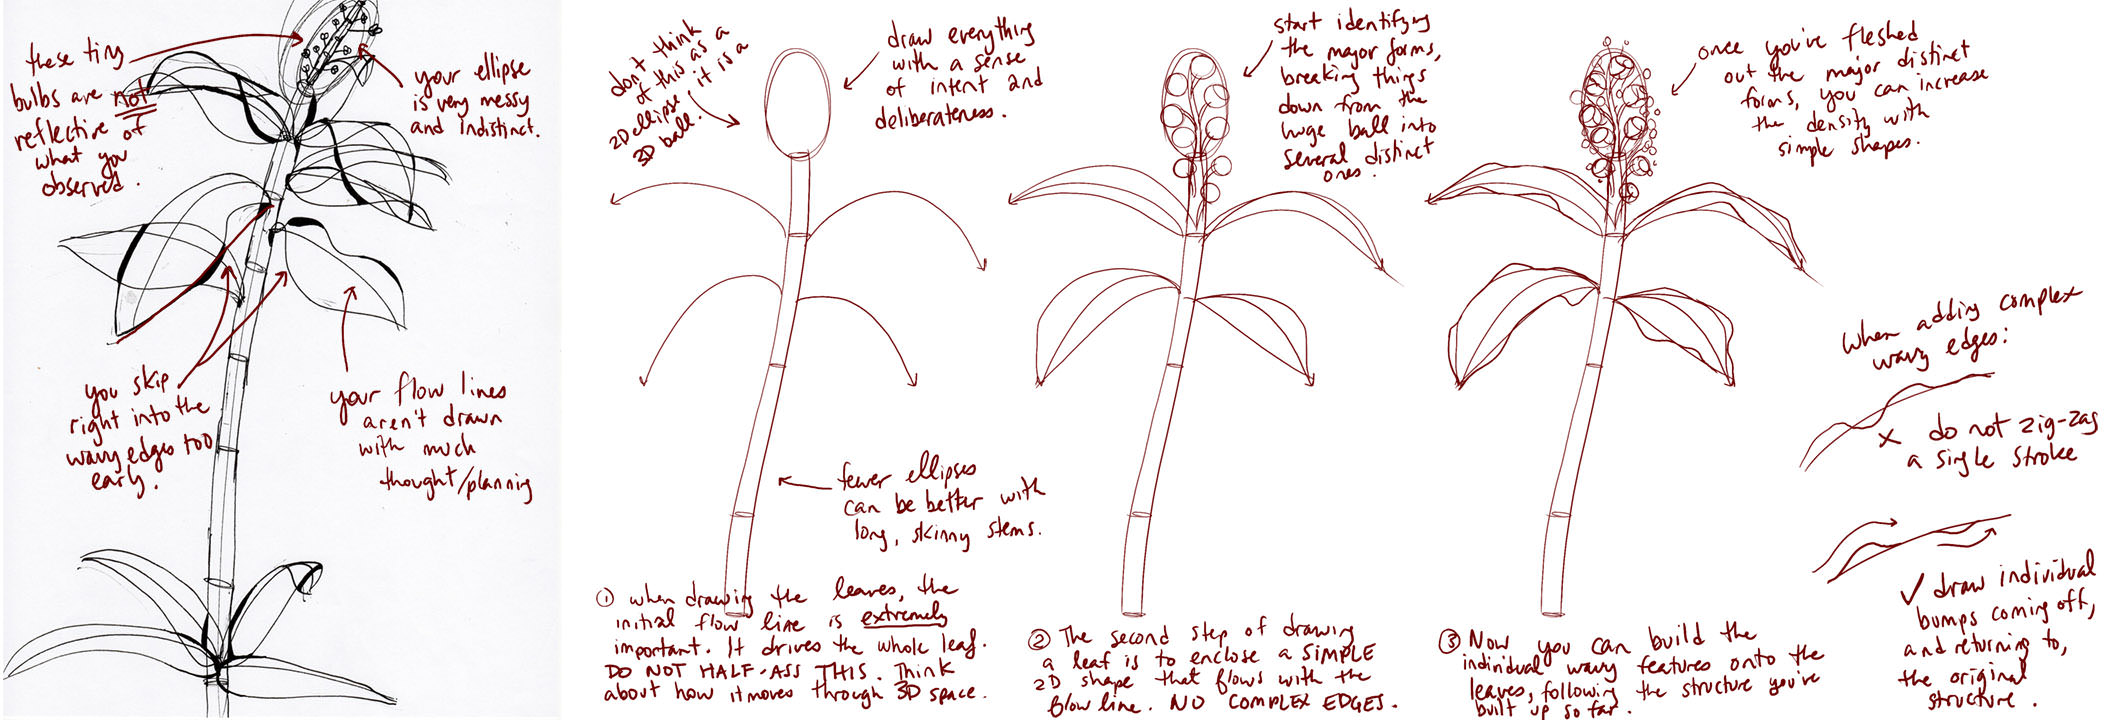 these tiny
bulbs are not
reflective of
what you
observed.
your ellipse
is very messy
and indistinct.
you skip
right into the
wavy edges too
early.
your flow lines
aren't drawn
with much
thought/planning
don't think
of this as a
2D ellipse, it is a
3D ball.
draw everything
with a sense
of intent and
deliberateness.
fewer ellipses
can be better with
long, skinny stems.
① when drawing the leaves, the
initial flow line is extremely
important. It drives the whole leaf.
DO NOT HALF-ASS THIS. Think
about how it moves through 3D space.
start identifying
the major forms,
breaking things
down from the
huge ball into
several distinct
ones.
② The second step of drawing
a leaf is to enclose a SIMPLE
2D shape that flows with the
flow line. NO COMPLEX EDGES.
once you've fleshed
out the major distinct
forms, you can increase
the density with
simple shapes.
③ Now you can build the
individual wavy features onto the
leaves, following the structure you've
built up so far.
When adding complex
wavy edges:
× do not zig-zag
a single stroke
✓ draw individual
bumps coming off,
and returning to,
the original
structure.